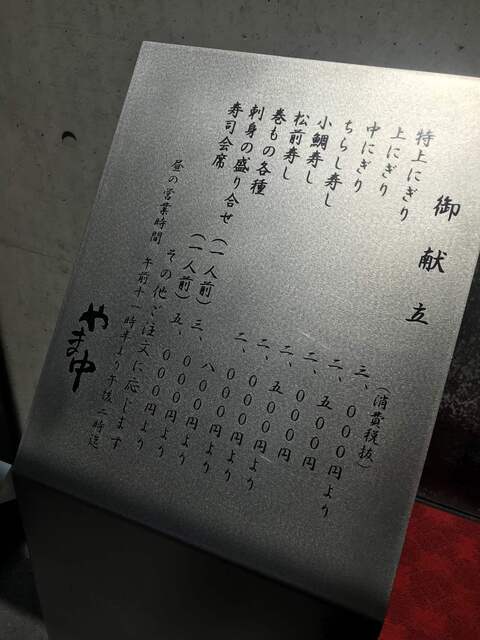 御献立
(消費税抜)
特上にぎり 三、〇〇〇円より
上にぎり 二、五〇〇円
中にぎり 二、〇〇〇円
ちらし寿し 二、五〇〇円
小鯛寿し 二、〇〇〇円より
松前寿し 二、〇〇〇円より
巻もの各種 八〇〇円より
刺身の盛り合せ(一人前) 三、〇〇〇円より
寿司会席(一人前) 五、〇〇〇円より
その他ご注文に応じます
昼の営業時間 午前十一時半より午後二時迄
やま中